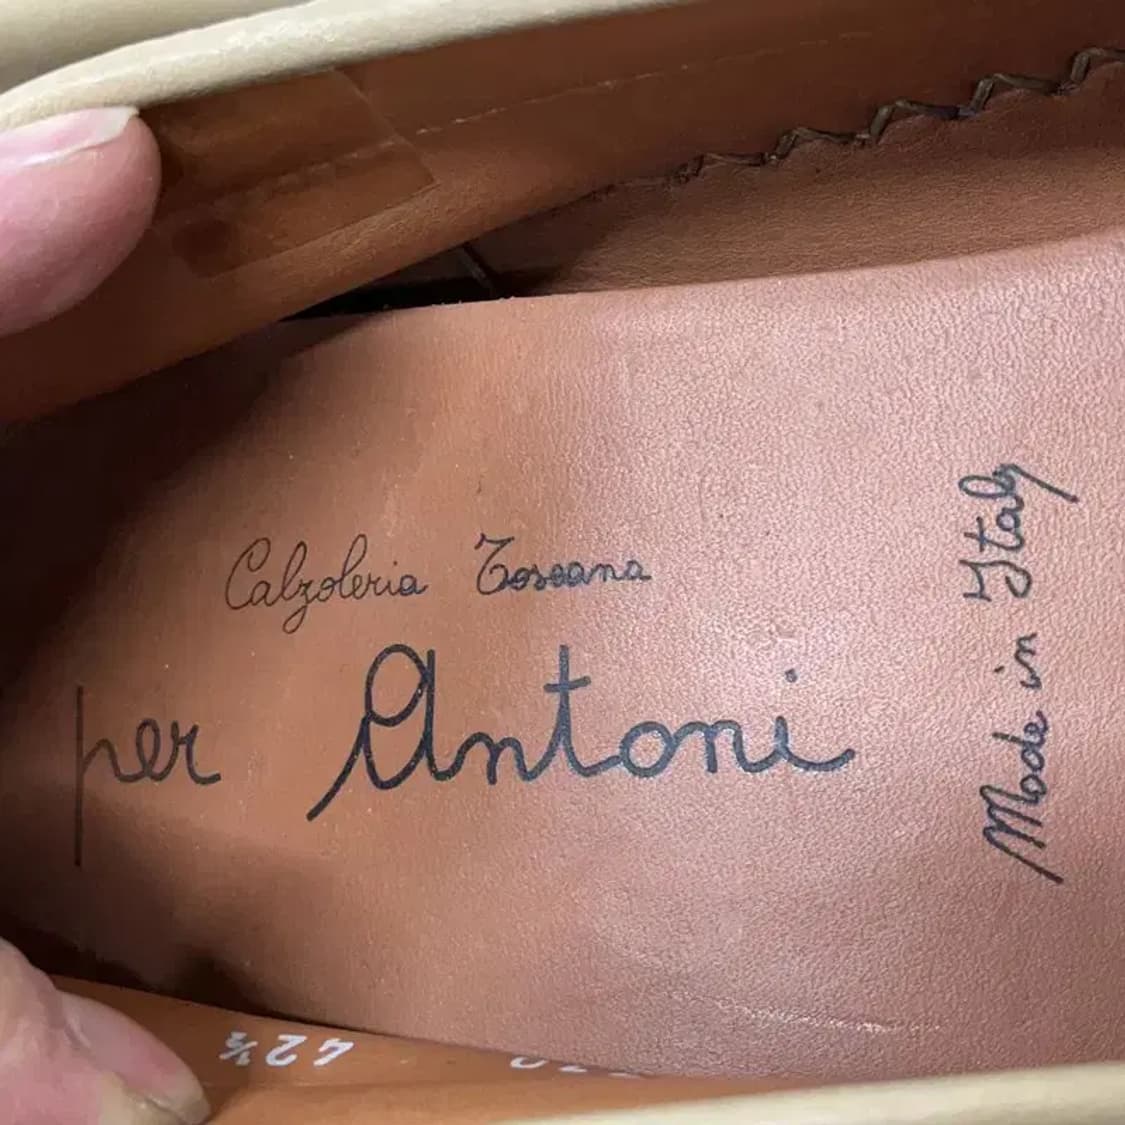 Calzoleria Toscana
per Antoni
Made in Italy
42½